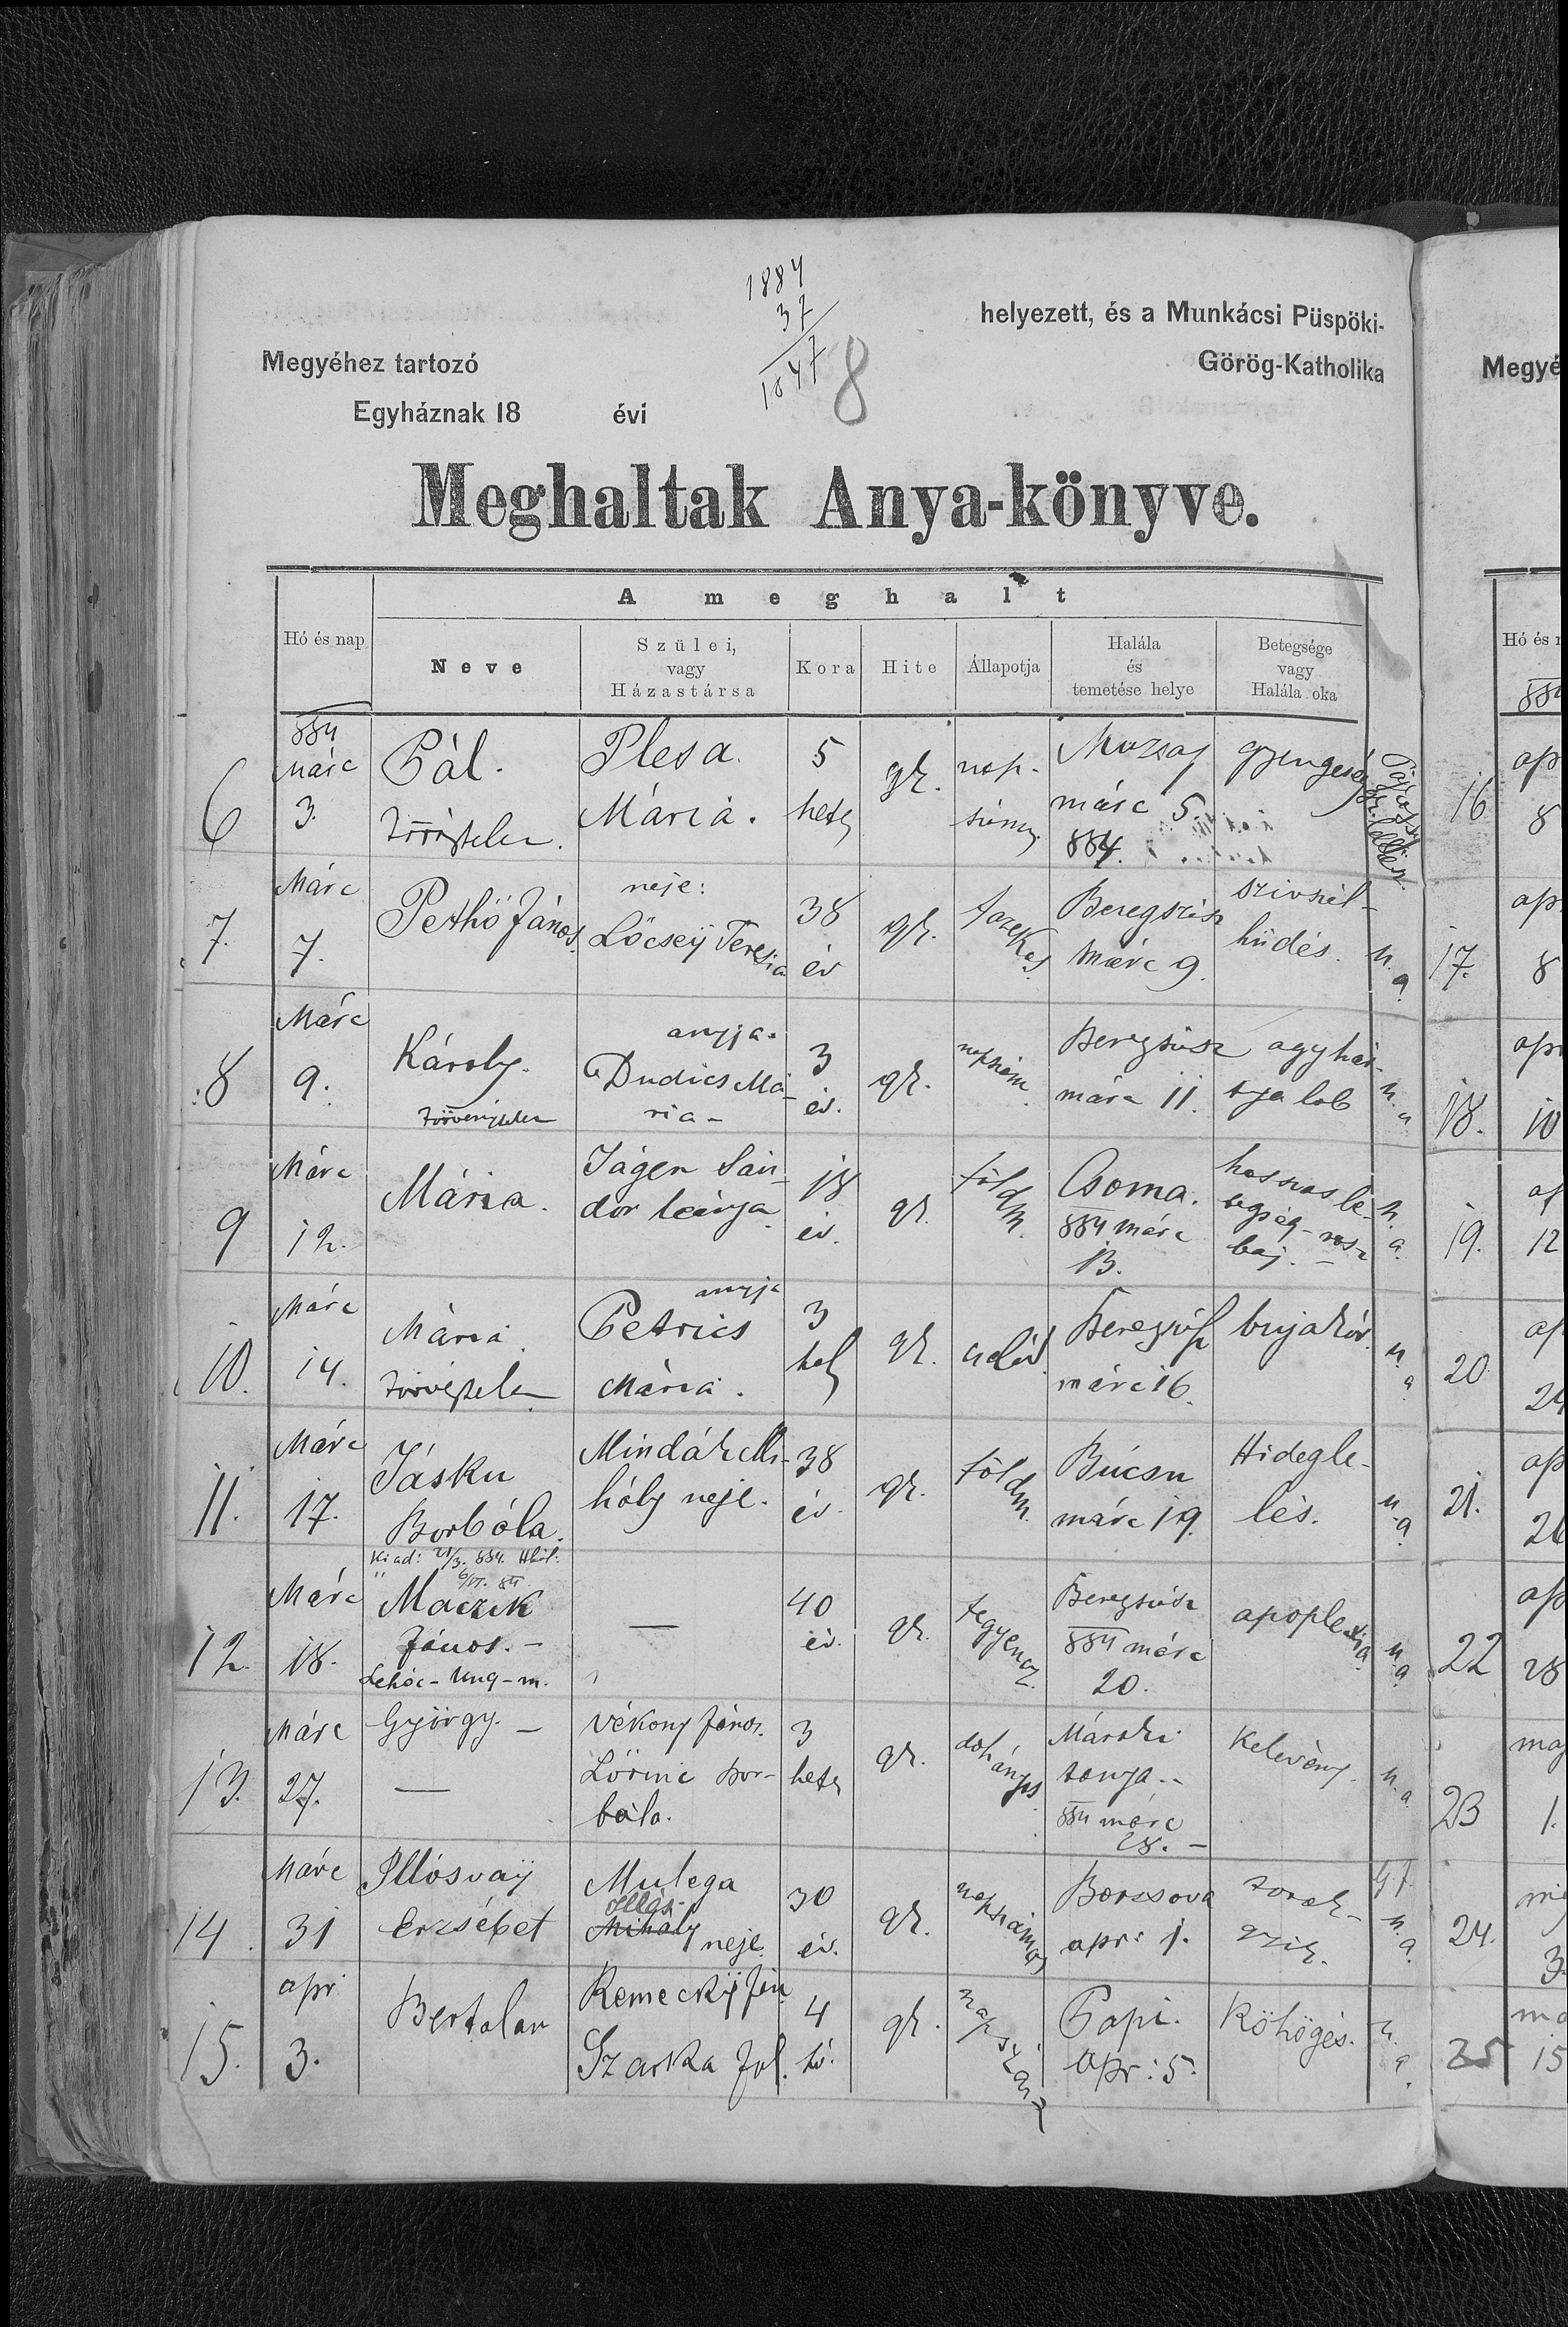 1884
37
1847
8
helyezett, és a Munkácsi Püspöki-
Megyéhez tartozó
Görög-Katholika
Egyháznak 18 évi
Meghaltak Anya-könyve.
A meghalt
Hó és nap
Neve
Szülei,
vagy
Házastársa
Kora
Hite
Állapotja
Halála
és
temetése helye
Betegsége
vagy
Halála oka
6
884
Márc
3.
Pál.
Plesa
Mária.
5
hetes
gk.
Muzsaj
márc 5.
884.
gyengeség
7.
Márc
7.
Pethő János
neje:
Lőcseÿ Teresia
38
év
gk.
fazekas
Beregszász
Márc 9.
szivszél-
hüdés.
u. a.
8
Márc
9.
Károly.
törvénytelen
anyja.
Dudics Má-
ria -
3
év.
gk.
napszám.
Beregszász
márc 11.
agyhár-
tya lob
u. a.
9
Márc
12.
Mária.
Jáger Sán-
dor leánya
18
év.
gk.
földm.
Csoma.
884 márc
13.
baj.
u. a.
10.
Márc
14.
Mária
anyja
Petrics
Mária.
3
het
gk.
Beregszász
márc 16.
bujakór.
u. a.
11.
Márc
17.
Jásku
Borbóla.
Mindák Mi-
hály neje.
38
év.
gk.
földm.
Búcsu
márc 19.
Hidegle-
lés.
u. a.
12.
Márc
18.
Kiad: 21/3. 884.
Maczik
János. -
Lehóc - Ung - m.
—
40
év.
gk.
fegyencz
Beregszász
884 márc
20.
apoplexia
u. a.
13.
Márc
27.
György. -
—
Vékony János.
Lőrinc Bor-
bála.
3
hetes
gk.
dohányos
tanya. -
884 márc
28. -
Kelevény.
u. a.
14.
Márc
31
Illósvaÿ
Erzsébet
Mulega
Illés
Mihály neje.
30
év.
gk.
napszámos
Borzsova
apr: 1.
u. a.
15.
apr
3.
Bertalan
Szarka Jul.
4
hó.
gk.
napszám
Papi.
Apr: 5.
Köhögés.
u. a.
Megyé
Hó és
884
16
ap
8
17.
ap
8
18.
apr
10
19.
ap
12
20
ap
24
21.
ap
26
22
ap
28
23
maj
1.
24.
3.
25
ma
15